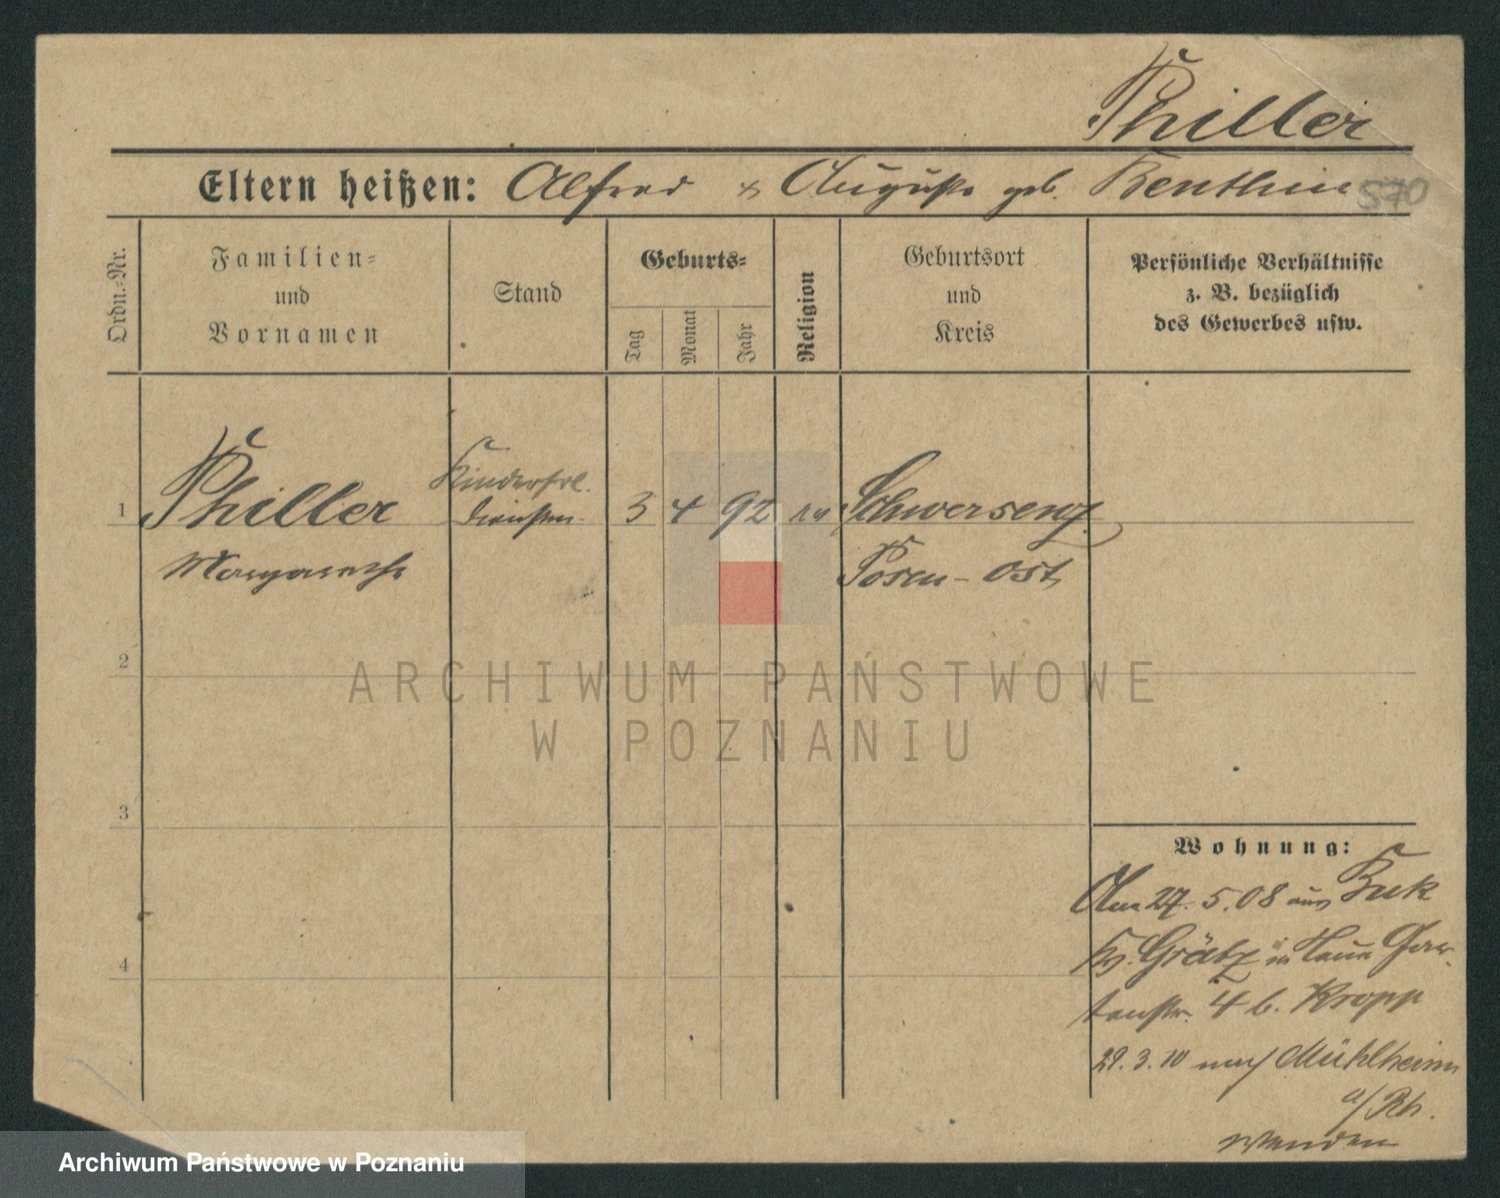 Philler
Eltern heißen: Alfred & Auguste geb. Benthin
570
Ordn.-Nr.
Familien-
und
Vornamen
Stand
Geburts-
Tag
Monat
Jahr
Religion
Geburtsort
und
Kreis
Persönliche Verhältnisse
z. B. bezüglich
des Gewerbes usw.
1 Philler Kinderfrl. 3 4 92 ev Schwersenz
Margarethe Posen-Ost
2
ARCHIWUM PAŃSTWOWE
W POZNANIU
3
Wohnung:
Am 27.5.08 aus Buk
Kr. Grätz in Neue Gar-
tenstr. 4 b. Kropp
29.3.10 nach Mühlheim
a/Rh.
4
Archiwum Państwowe w Poznaniu